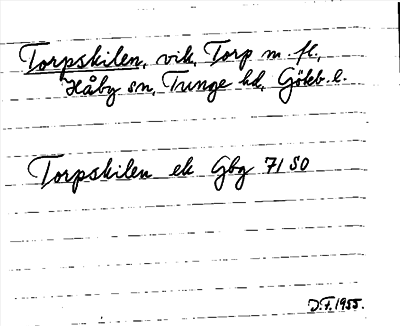 Torpskilen, vik, Torp m. fl.,
Håby sn, Tunge hd, Göteb. l.
Torpskilen ek Gbg 71 SO
D.F. 1955.